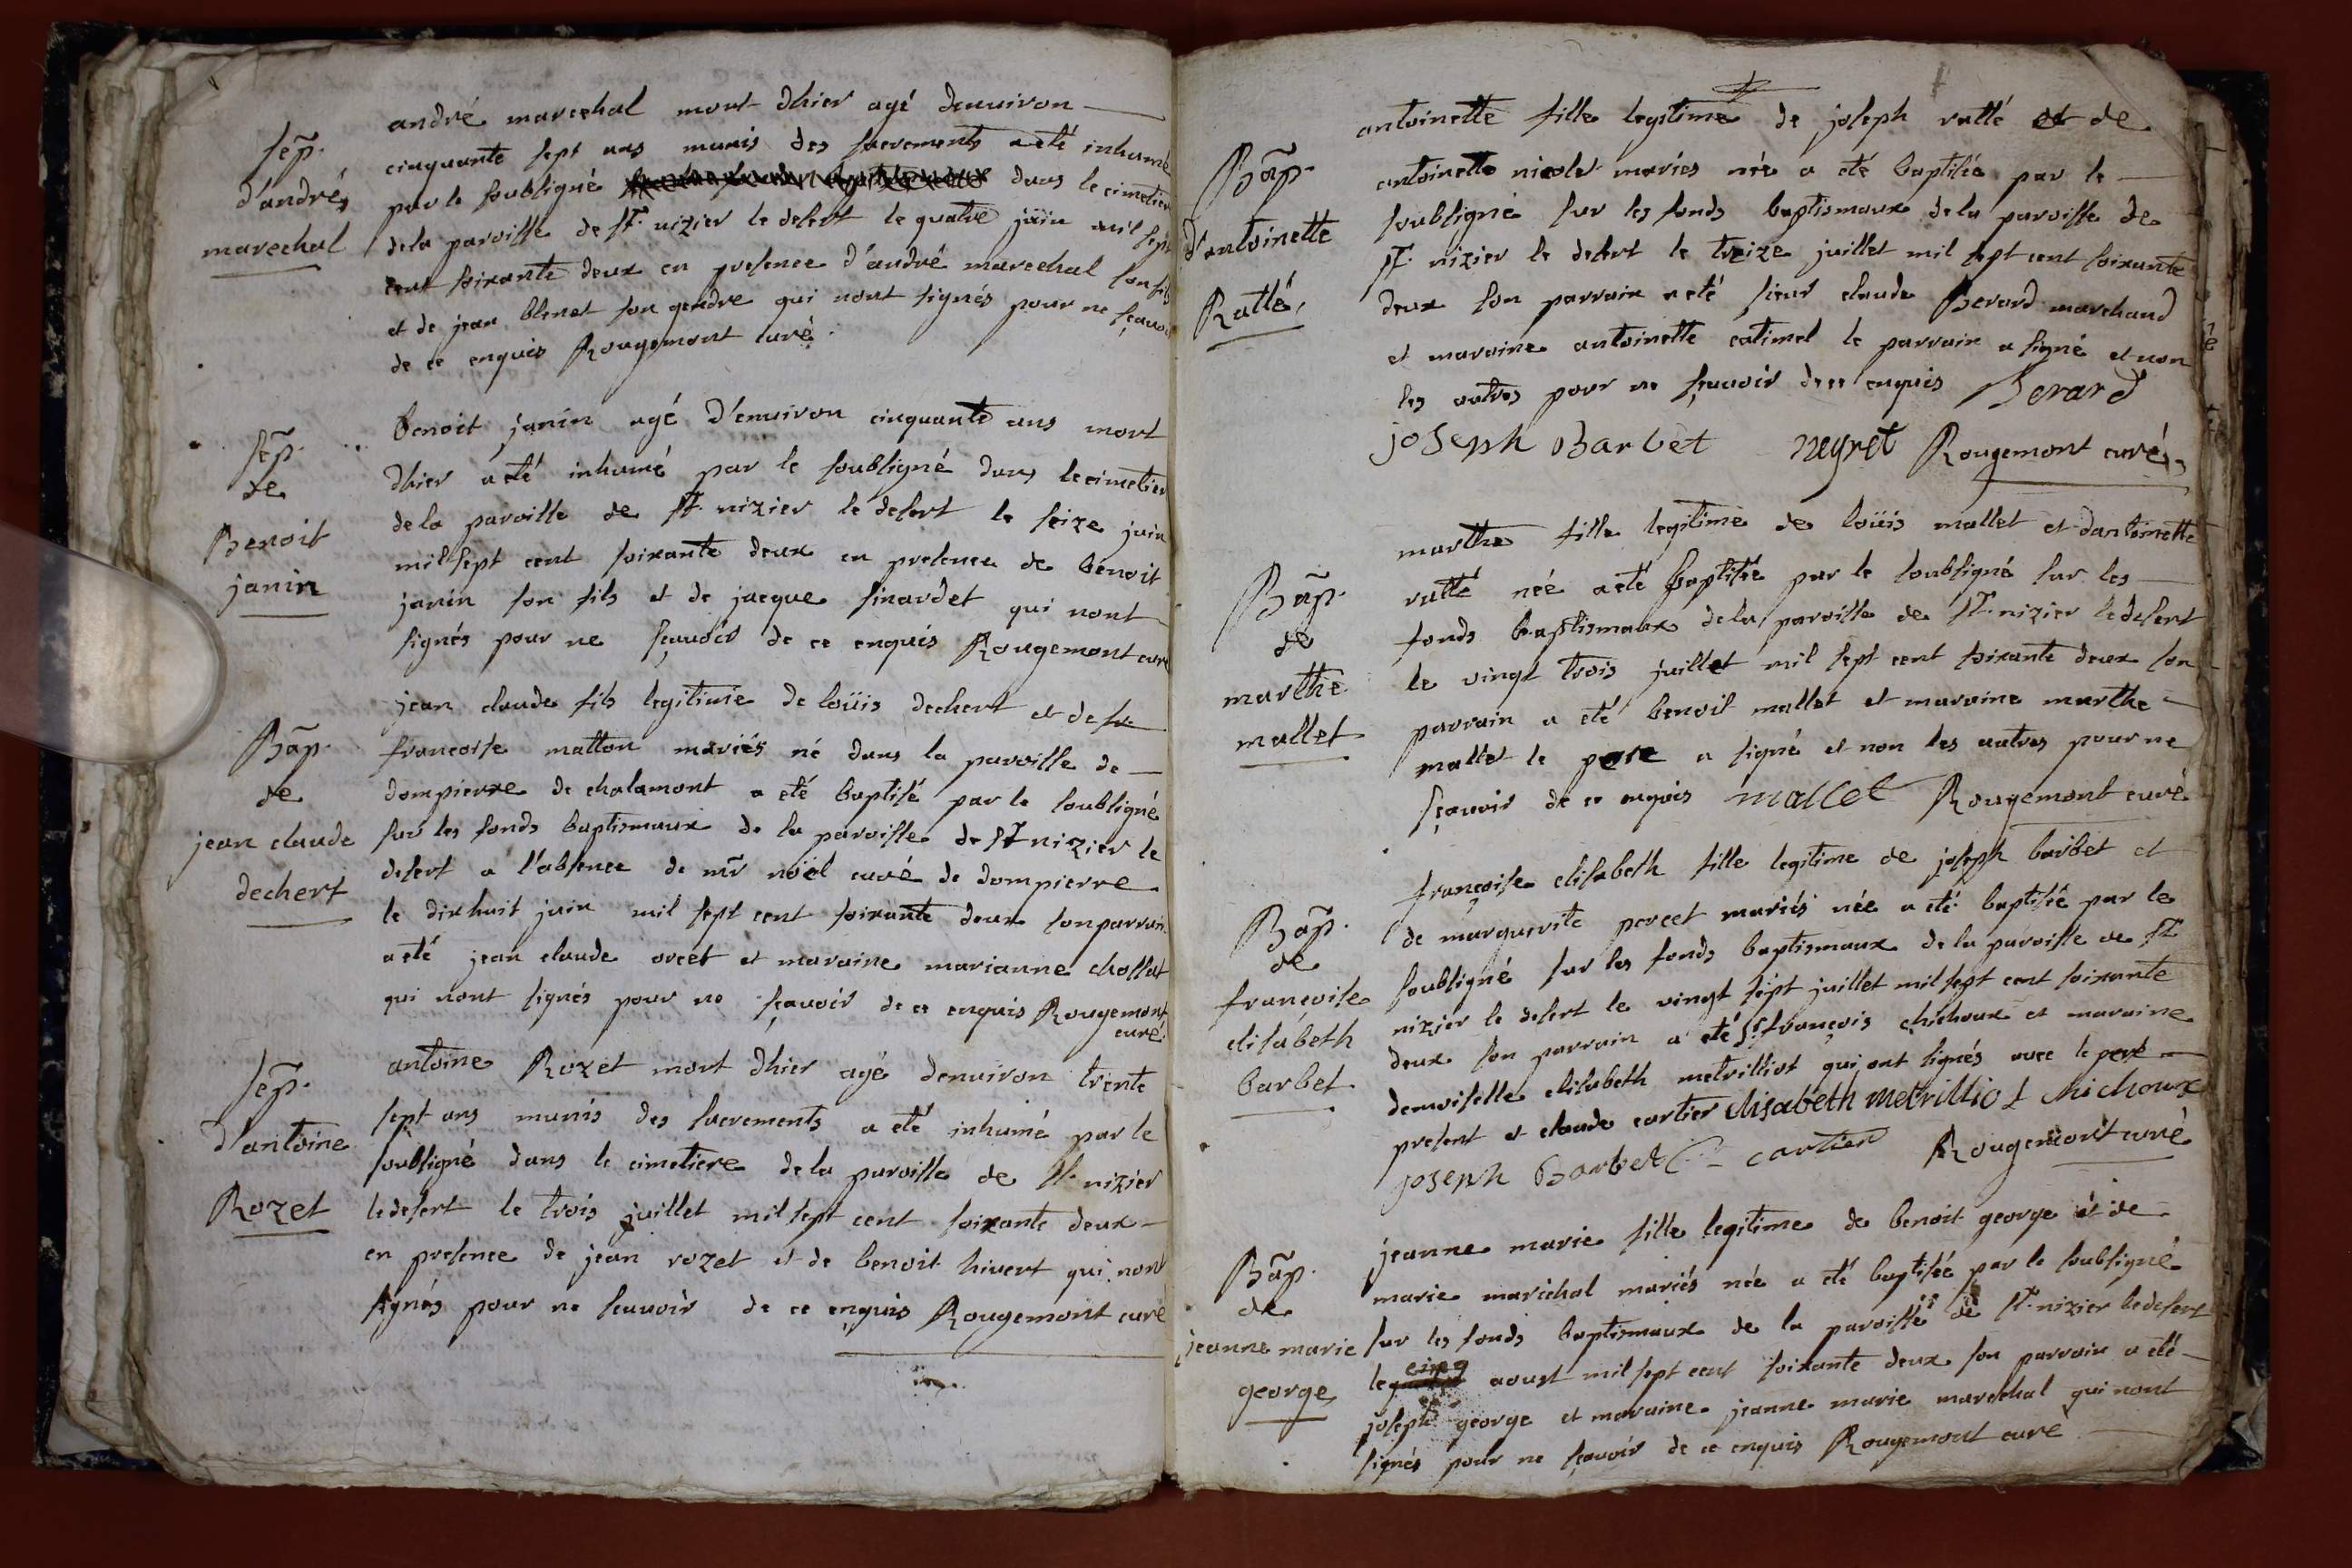 sep̃.
d'andré
marechal
andré marechal mort dhier agé denuiron
cinquante sept ans munis des sacrements a eté inhumé
par le soubsigné dans le cimetier
dela paroisse de St. nizier le desert le quatre juin mil sept
cent soixante deux en presence d'andré marechal son fils
et de jean blenet son gendre qui nont signés pour ne sçavoir
de ce enquis Rougemont curé.
sep̃.
de
Benoit
janin
benoit janin agé d'enuiron cinquante ans mort
dhier a eté inhumé par le soubsigné dans le cimetier
dela paroisse de St. nizier le desert le seize juin
mil sept cent soixante deux en presence de benoit
janin son fils et de jacque sinardet qui nont
signés pour ne sçauoir de ce enquis Rougemont curé
Bap̃.
de
jean claude
dechert
jean claude fils legitime de loüis dechert et de
francoise matton mariés né dans la paroisse de
dompierre de chalamont a eté baptisé par le soubsigné
sur les fonds baptismaux de la paroisse de St nizier le
desert a l'absence de mr̃ noël curé de dompierre
le dixhuit juin mil sept cent soixante deux son parrain
a eté jean claude orcet et maraine marianne chossat
qui nont signés pour ne sçavoir de ce enquis Rougemont
curé.
sep̃.
d'antoine
Rozet
antoine Rozet mort dhier agé denuiron trente
sept ans munis des sacrements a eté inhumé par le
soubsigné dans le cimetiere dela paroisse de St. nizier
le desert le trois juillet mil sept cent soixante deux
en presence de jean rozet et de benoit hivert qui nont
signés pour ne sçauoir de ce enquis Rougemont curé
Bap̃.
d'antoinette
Ratté
antoinette fille legitime de joseph ratté et de
antoinette nicolet mariés née a eté baptisée par le
soubsigné sur les fonds baptismaux dela paroisse de
St. nizier le desert le treize juillet mil sept cent soixante
deux son parrain a eté sieur claude Berard marchand
et maraine antoinette catimel le parrain a signé et non
les autres pour ne sçauoir de ce enquis Berard
joseph Barbet neyret Rougemont curé
Bap̃.
de
marthe
mallet
marthe fille legitime de loüis mallet et dantoinette
ratté née a eté baptisée par le soubsigné sur les
fonds baptismaux dela paroisse de St. nizier le desert
le vingt trois juillet mil sept cent soixante deux son
parrain a eté benoit mallet et maraine marthe
mallet le pere a signé et non les autres pour ne
sçauoir de ce enquis mallet Rougemont curé
Bap̃.
de
françoise
elisabeth
barbet
françoise elisabeth fille legitime de joseph barbet et
de marguerite percet mariés née a eté baptisée par le
soubsigné sur les fonds baptismaux dela paroisse de St
nizier le desert le vingt sept juillet mil sept cent soixante
deux son parrain a eté Sr françois chichoux et maraine
demoiselle elisabeth metrilliot qui ont signés avec le peré
present et claude cartier Elisabeth metrilliot chichoux
joseph Barbet C cartier Rougemont curé
Bap̃.
de
jeanne marie
george
jeanne marie fille legitime de benoit george et de
marie marichal mariés née a eté baptisée par le soubsigné
sur les fonds baptismaux de la paroisse de St. nizier le desert
le cinq aoust mil sept cent soixante deux son parrain a eté
joseph george et maraine jeanne marie marechal qui nont
signés pour ne sçauoir de ce enquis Rougemont curé